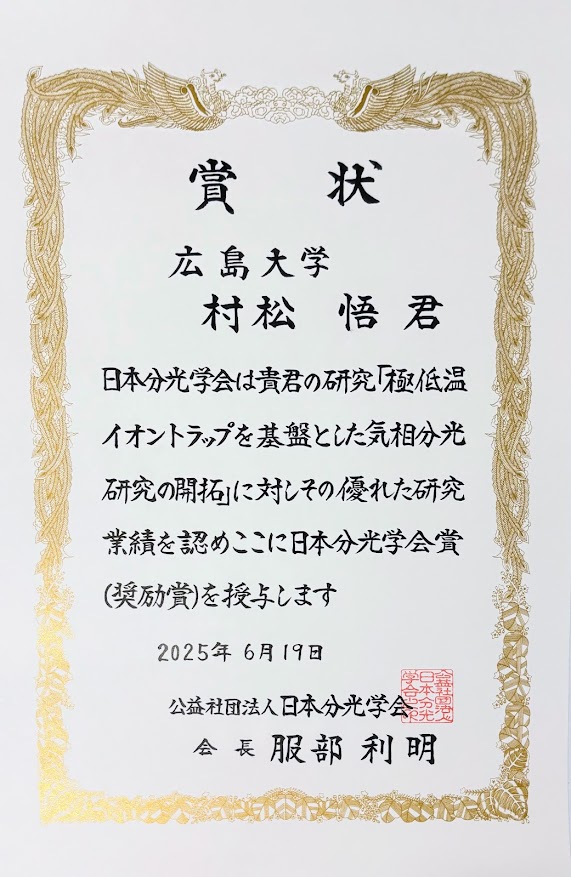 賞状
広島大学
村松 悟 君
日本分光学会は貴君の研究「極低温
イオントラップを基盤とした気相分光
研究の開拓」に対しその優れた研究
業績を認めここに日本分光学会賞
(奨励賞)を授与します
2025年6月19日
公益社団法人日本分光学会
会長 服部利明